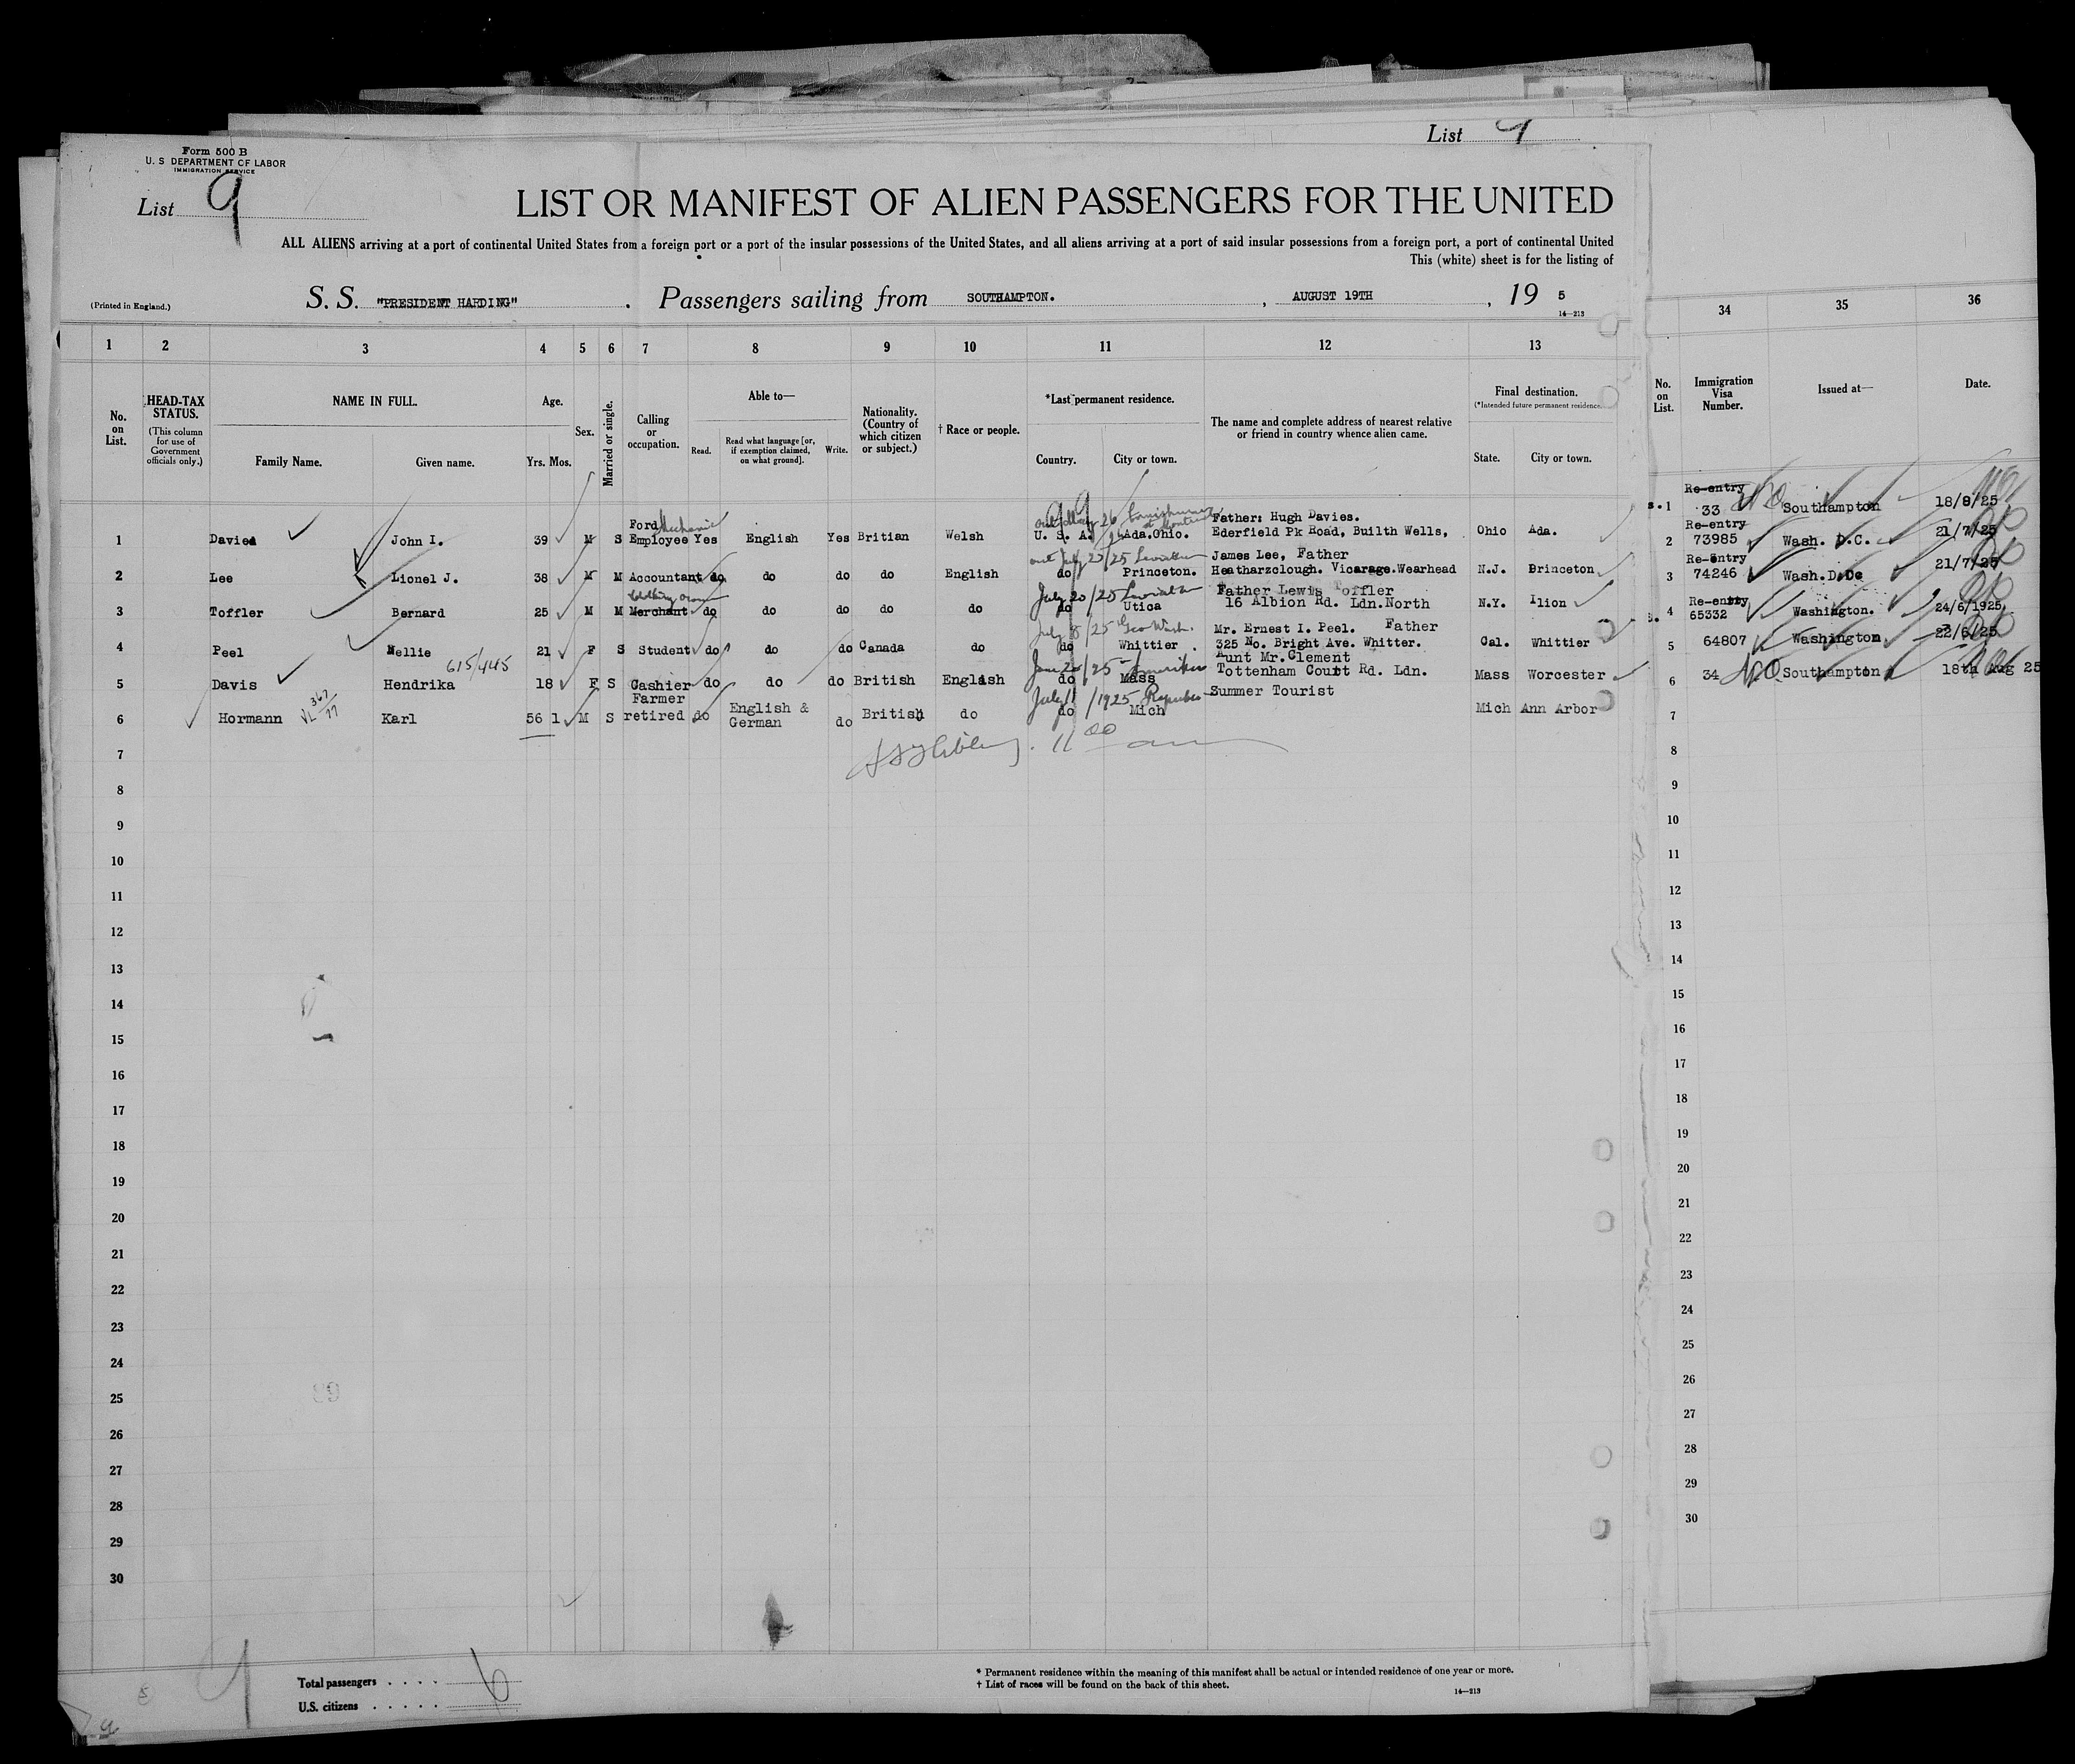 List 9
Form 500 B
U. S DEPARTMENT OF LABOR
IMMIGRATION SERVICE
List 9
LIST OR MANIFEST OF ALIEN PASSENGERS FOR THE UNITED
ALL ALIENS arriving at a port of continental United States from a foreign port or a port of the insular possessions of the United States, and all aliens arriving at a port of said insular possessions from a foreign port, a port of continental United
This (white) sheet is for the listing of
(Printed in England.) S. S. "PRESIDENT HARDING" . Passengers sailing from SOUTHAMPTON. , AUGUST 19TH , 19 5
14—213
1 2 3 4 5 6 7 8 9 10 11 12 13 34 35 36
No. on List.
HEAD-TAX STATUS.
(This column for use of Government officials only.)
NAME IN FULL.
Family Name. Given name.
Age.
Yrs. Mos.
Sex.
Married or single.
Calling or occupation.
Able to—
Read. Read what language [or, if exemption claimed, on what ground]. Write.
Nationality. (Country of which citizen or subject.)
† Race or people.
*Last permanent residence.
Country. City or town.
The name and complete address of nearest relative or friend in country whence alien came.
Final destination.
(*Intended future permanent residence.
State. City or town.
No. on List.
Immigration Visa Number.
Issued at—
Date.
Ford Mechanic Father: Hugh Davies.
1 Davies John I. 39 M S Employee Yes English Yes Britian Welsh U. S. A. Ada.Ohio. Ederfield Pk Road, Builth Wells, Ohio Ada.
out July 20/25 Leviathan James Lee, Father
2 Lee Lionel J. 38 M M Accountant do do do do English do Princeton. Heatharzclough. Vicarage.Wearhead N.J. Princeton
July 20/25 Leviathan Father Lewis Toffler
3 Toffler Bernard 25 M M Merchant do do do do do do Utica 16 Albion Rd. Ldn.North N.Y. Ilion
July 8/25 Geo Wash. Mr. Ernest I. Peel. Father
4 Peel Nellie 21 F S Student do do do Canada do do Whittier . 325 No. Bright Ave. Whitter. Cal. Whittier
615/445 June 20/25 Aunt Mr.Clement
5 Davis Hendrika 18 F S Cashier do do do British English do Mass Tottenham Court Rd. Ldn. Mass Worcester
Farmer July 11/1925 Summer Tourist
6 Hormann Karl 56 1 M S retired do English & German do British do do Mich Mich Ann Arbor
11 00 am
7
8
9
10
11
12
13
14
15
16
17
18
19
20
21
22
23
24
25
26
27
28
29
30
s. 1 Re-entry 33 Southampton 18/8/25
2 Re-entry 73985 Wash. D.C. 21/7/25
3 Re-entry 74246 Wash.D.Dc 21/7/25
s. 4 Re-entry 65332 Washington. 24/6/1925
5 64807 Washington 22/6/25
6 34 Southampton 18th Aug 25
7
8
9
10
11
12
13
14
15
16
17
18
19
20
21
22
23
24
25
26
27
28
29
30
Total passengers . . . . 6
U.S. citizens . . . . .
* Permanent residence within the meaning of this manifest shall be actual or intended residence of one year or more.
† List of races will be found on the back of this sheet.
14—213